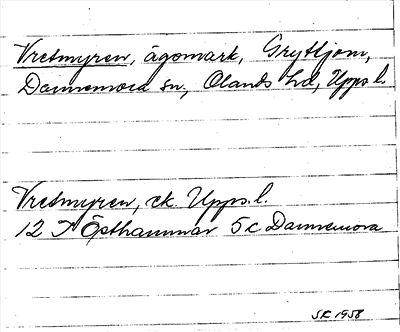 Vretmyren, ägomark, Gryttjom,
Dannemora sn, Olands hd, Upps.l.
Vretmyren, ek. Upps.l.
12 I Östhammar 5c Dannemora
SR 1958